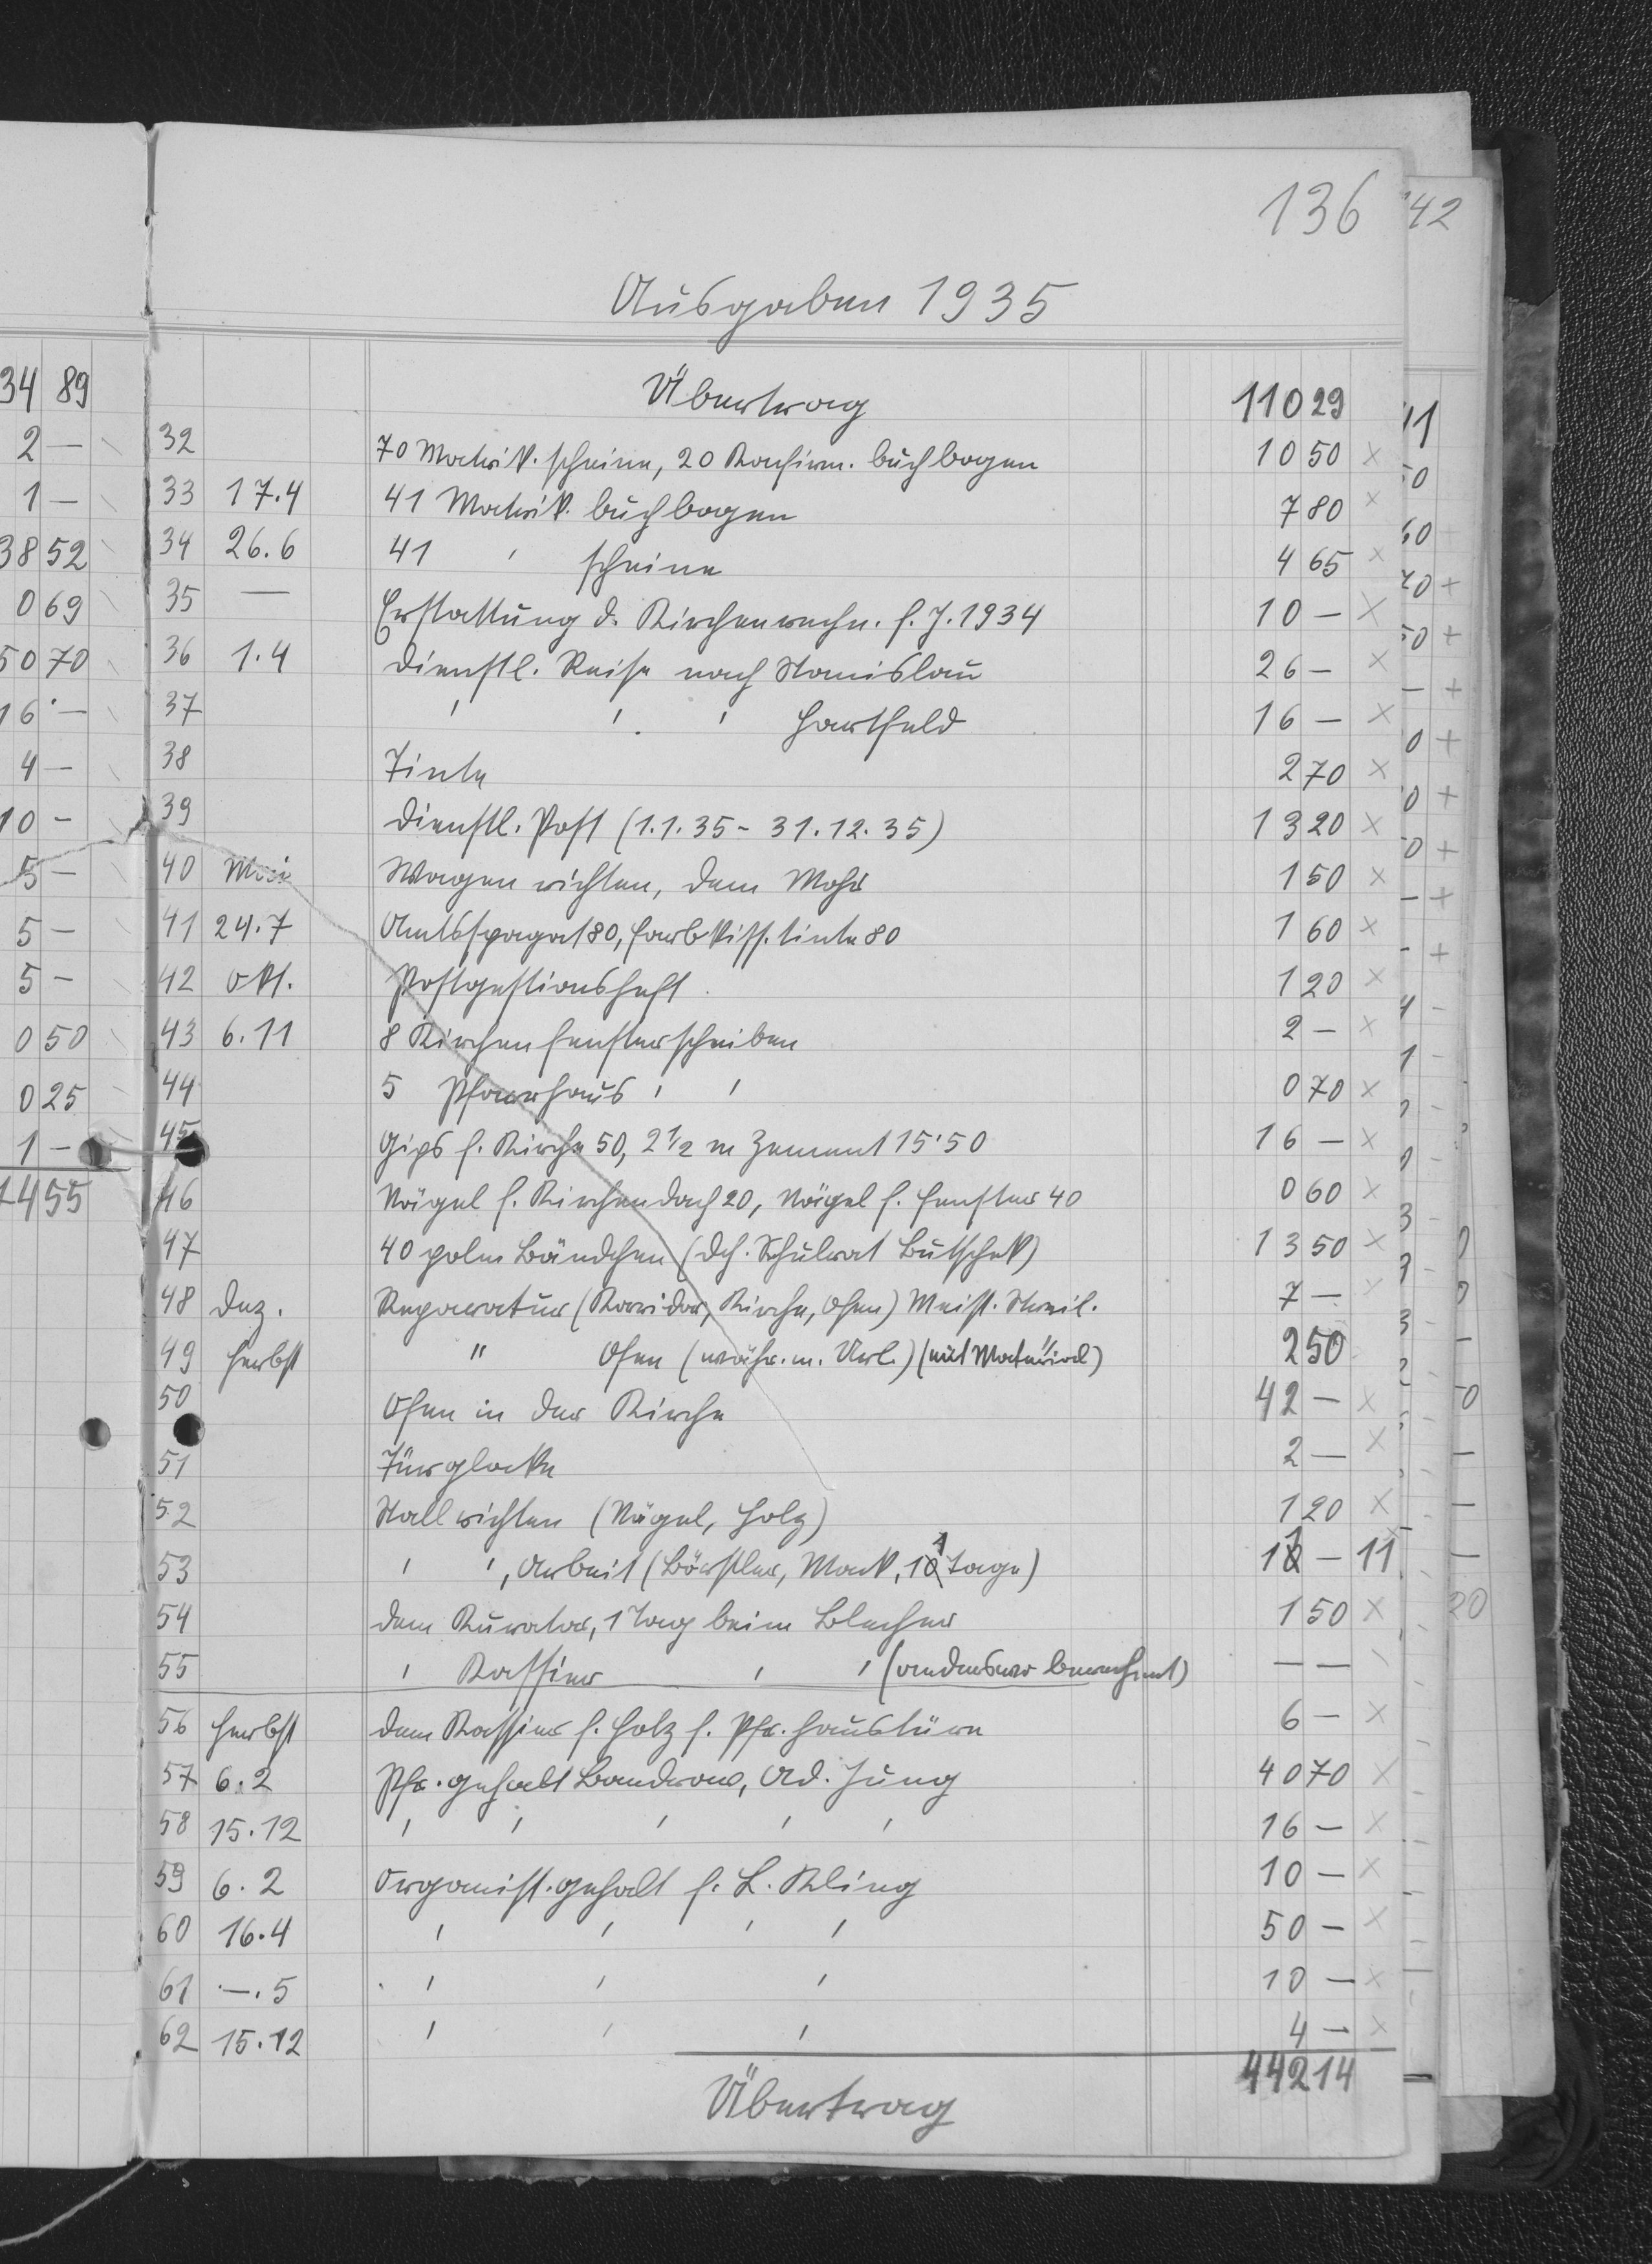 136
Ausgaben 1935
Übertrag 110 29
32 70 Matrik. scheine, 20 Konfirm. buchbogen 10 50 ×
33 17.4 41 Matrik. buchbogen 7 80 ×
34 26.6 41 ' scheine 4 65 ×
35 — Erstattung d. Kirchenrechn. f. J. 1934 10 — ×
36 1.4 Dienstl. Reise nach Stanislau 26 — ×
37 ' ' ' Hartfeld 16 — ×
38 Tinte 2 70 ×
39 Dienstl. Post (1.1.35 - 31.12.35) 13 20 ×
40 Mai Wagen richten, dem Mohr 1 50 ×
41 24.7 Amtsspagat 80, Farbkiss. tinte 80 1 60 ×
42 Okt. Postgestionsheft 1 20 ×
43 6.11 8 Kirchenfensterscheiben 2 — ×
44 5 Pfarrhaus ' ' 0 70 ×
45 Gips f. Kirche 50, 2 1/2 m Zement 15'50 16 — ×
46 Nägel f. Kirchendach 20, Nägel f. Fenster 40 0 60 ×
47 40 poln Bändchen (dch. Schulrat Butschek) 13 50 ×
48 Dez. Reparatur (Korridor, Kirche, Ofen) Meist. 7 — ×
49 Herbst " Ofen (währ. m. Url.) (mit Material) 2 50
50 Ofen in der Kirche 42 — ×
51 Türglocke 2 — ×
52 Stall richten (Nägel, Holz) 1 20 ×
53 ' ', Arbeit (Börstler, Mack, 11 Tage) 11 — 11
54 dem Kurator, 1 Tag beim Blecher 1 50 ×
55 ' Kassier ' ' (anderswo berechnet) — —
56 Herbst dem Kassier f. Holz f. Pfr. haustüre 6 — ×
57 6.2 Pfr. gehalt Bandrow, Ad. Jung 40 70 ×
58 15.12 ' ' ' ' ' 16 — ×
59 6.2 Organist. gehalt f. L. Kling 10 — ×
60 16.4 ' ' ' ' 50 — ×
61 —.5 ' ' ' 10 — ×
62 15.12 ' ' ' 4 — ×
442 14
Übertrag
34 89
2 —
1 —
38 52
0 69
50 70
16 —
4 —
10 —
5 —
5 —
5 —
0 50
0 25
1 —
455
42